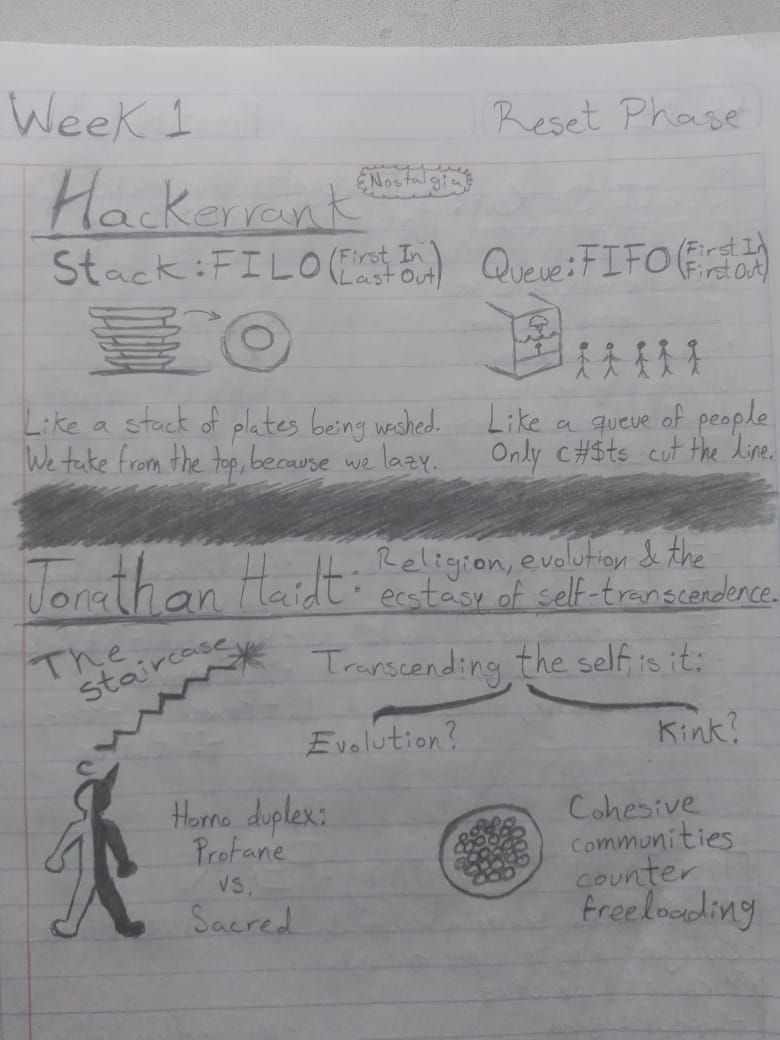 Week 1
Reset Phase
Hackerrank
Nostalgia
Stack: FILO (First In
Last Out)
Queue: FIFO (First In
First Out)
Like a stack of plates being washed.
We take from the top, because we lazy.
Like a queue of people
Only c#$ts cut the line.
Jonathan Haidt: Religion, evolution & the
ecstasy of self-transcendence.
The
staircase
Transcending the self, is it:
Evolution?
Kink?
Homo duplex:
Profane
vs.
Sacred
Cohesive
communities
counter
freeloading